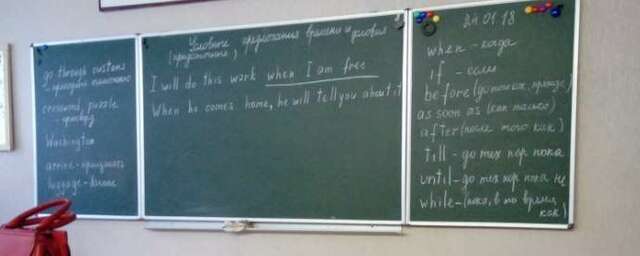 go through customs
- проходить таможню
crossword, puzzle
- кроссворд
Washington
arrive - прибывать
luggage - багаж
Условные предложения времени и условия
(придаточные)
I will do this work when I am free
When he comes home, he will tell you about it
01.18
when - когда
if - если
before (до того как, прежде)
as soon as (как только)
after (после того как)
till - до тех пор пока
until - до тех пор пока не
while - (пока, в то время
как)